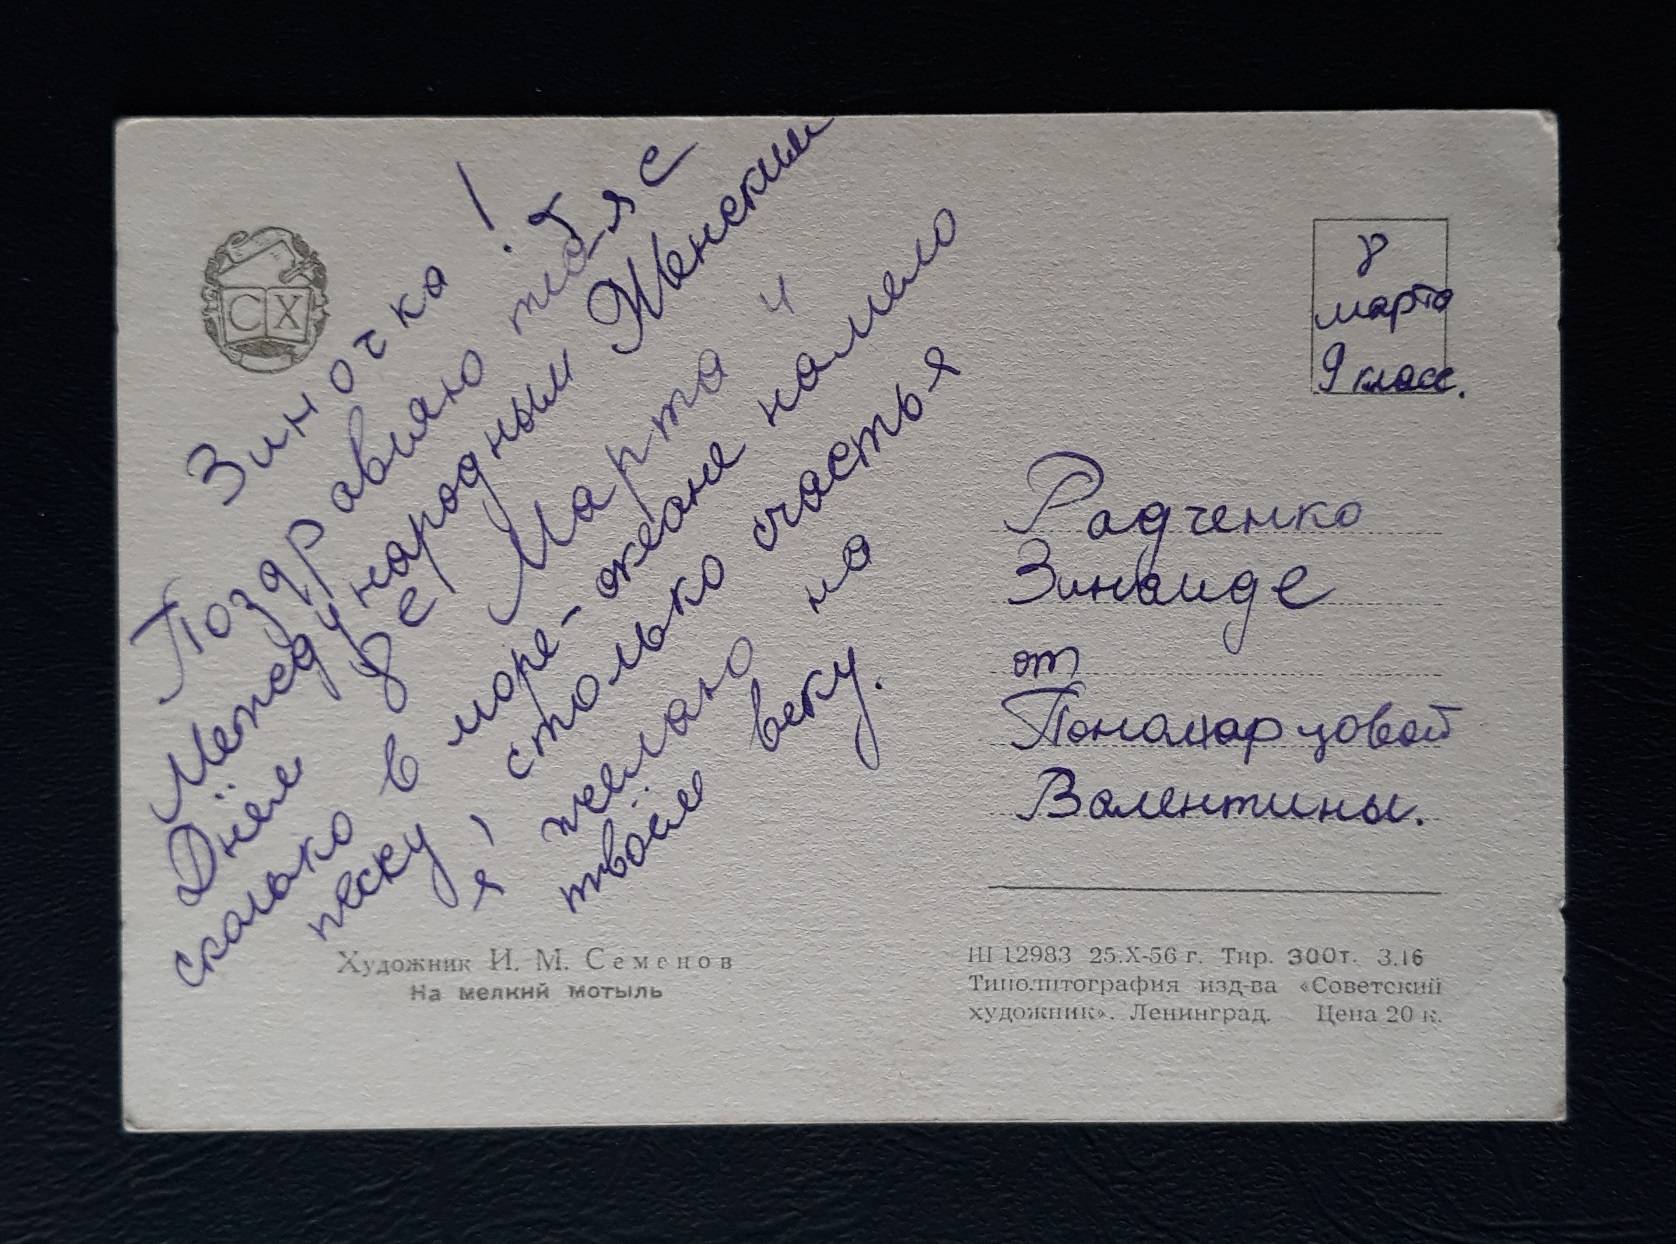 Зиночка!
Поздравляю тебя с
Международным Женским
Днём 8 ё Марта и
сколько в море-океане намело
песку, столько счастья
я желаю на
твоём веку.
СХ
8
марта
9 класс.
Радченко
Зинаиде
от
Пономарцовой
Валентины.
Художник И. М. Семенов
На мелкий мотыль
Ш 12983 25.X-56 г. Тир. 300т. З.16
Типолитография изд-ва «Советский
художник». Ленинград. Цена 20 к.